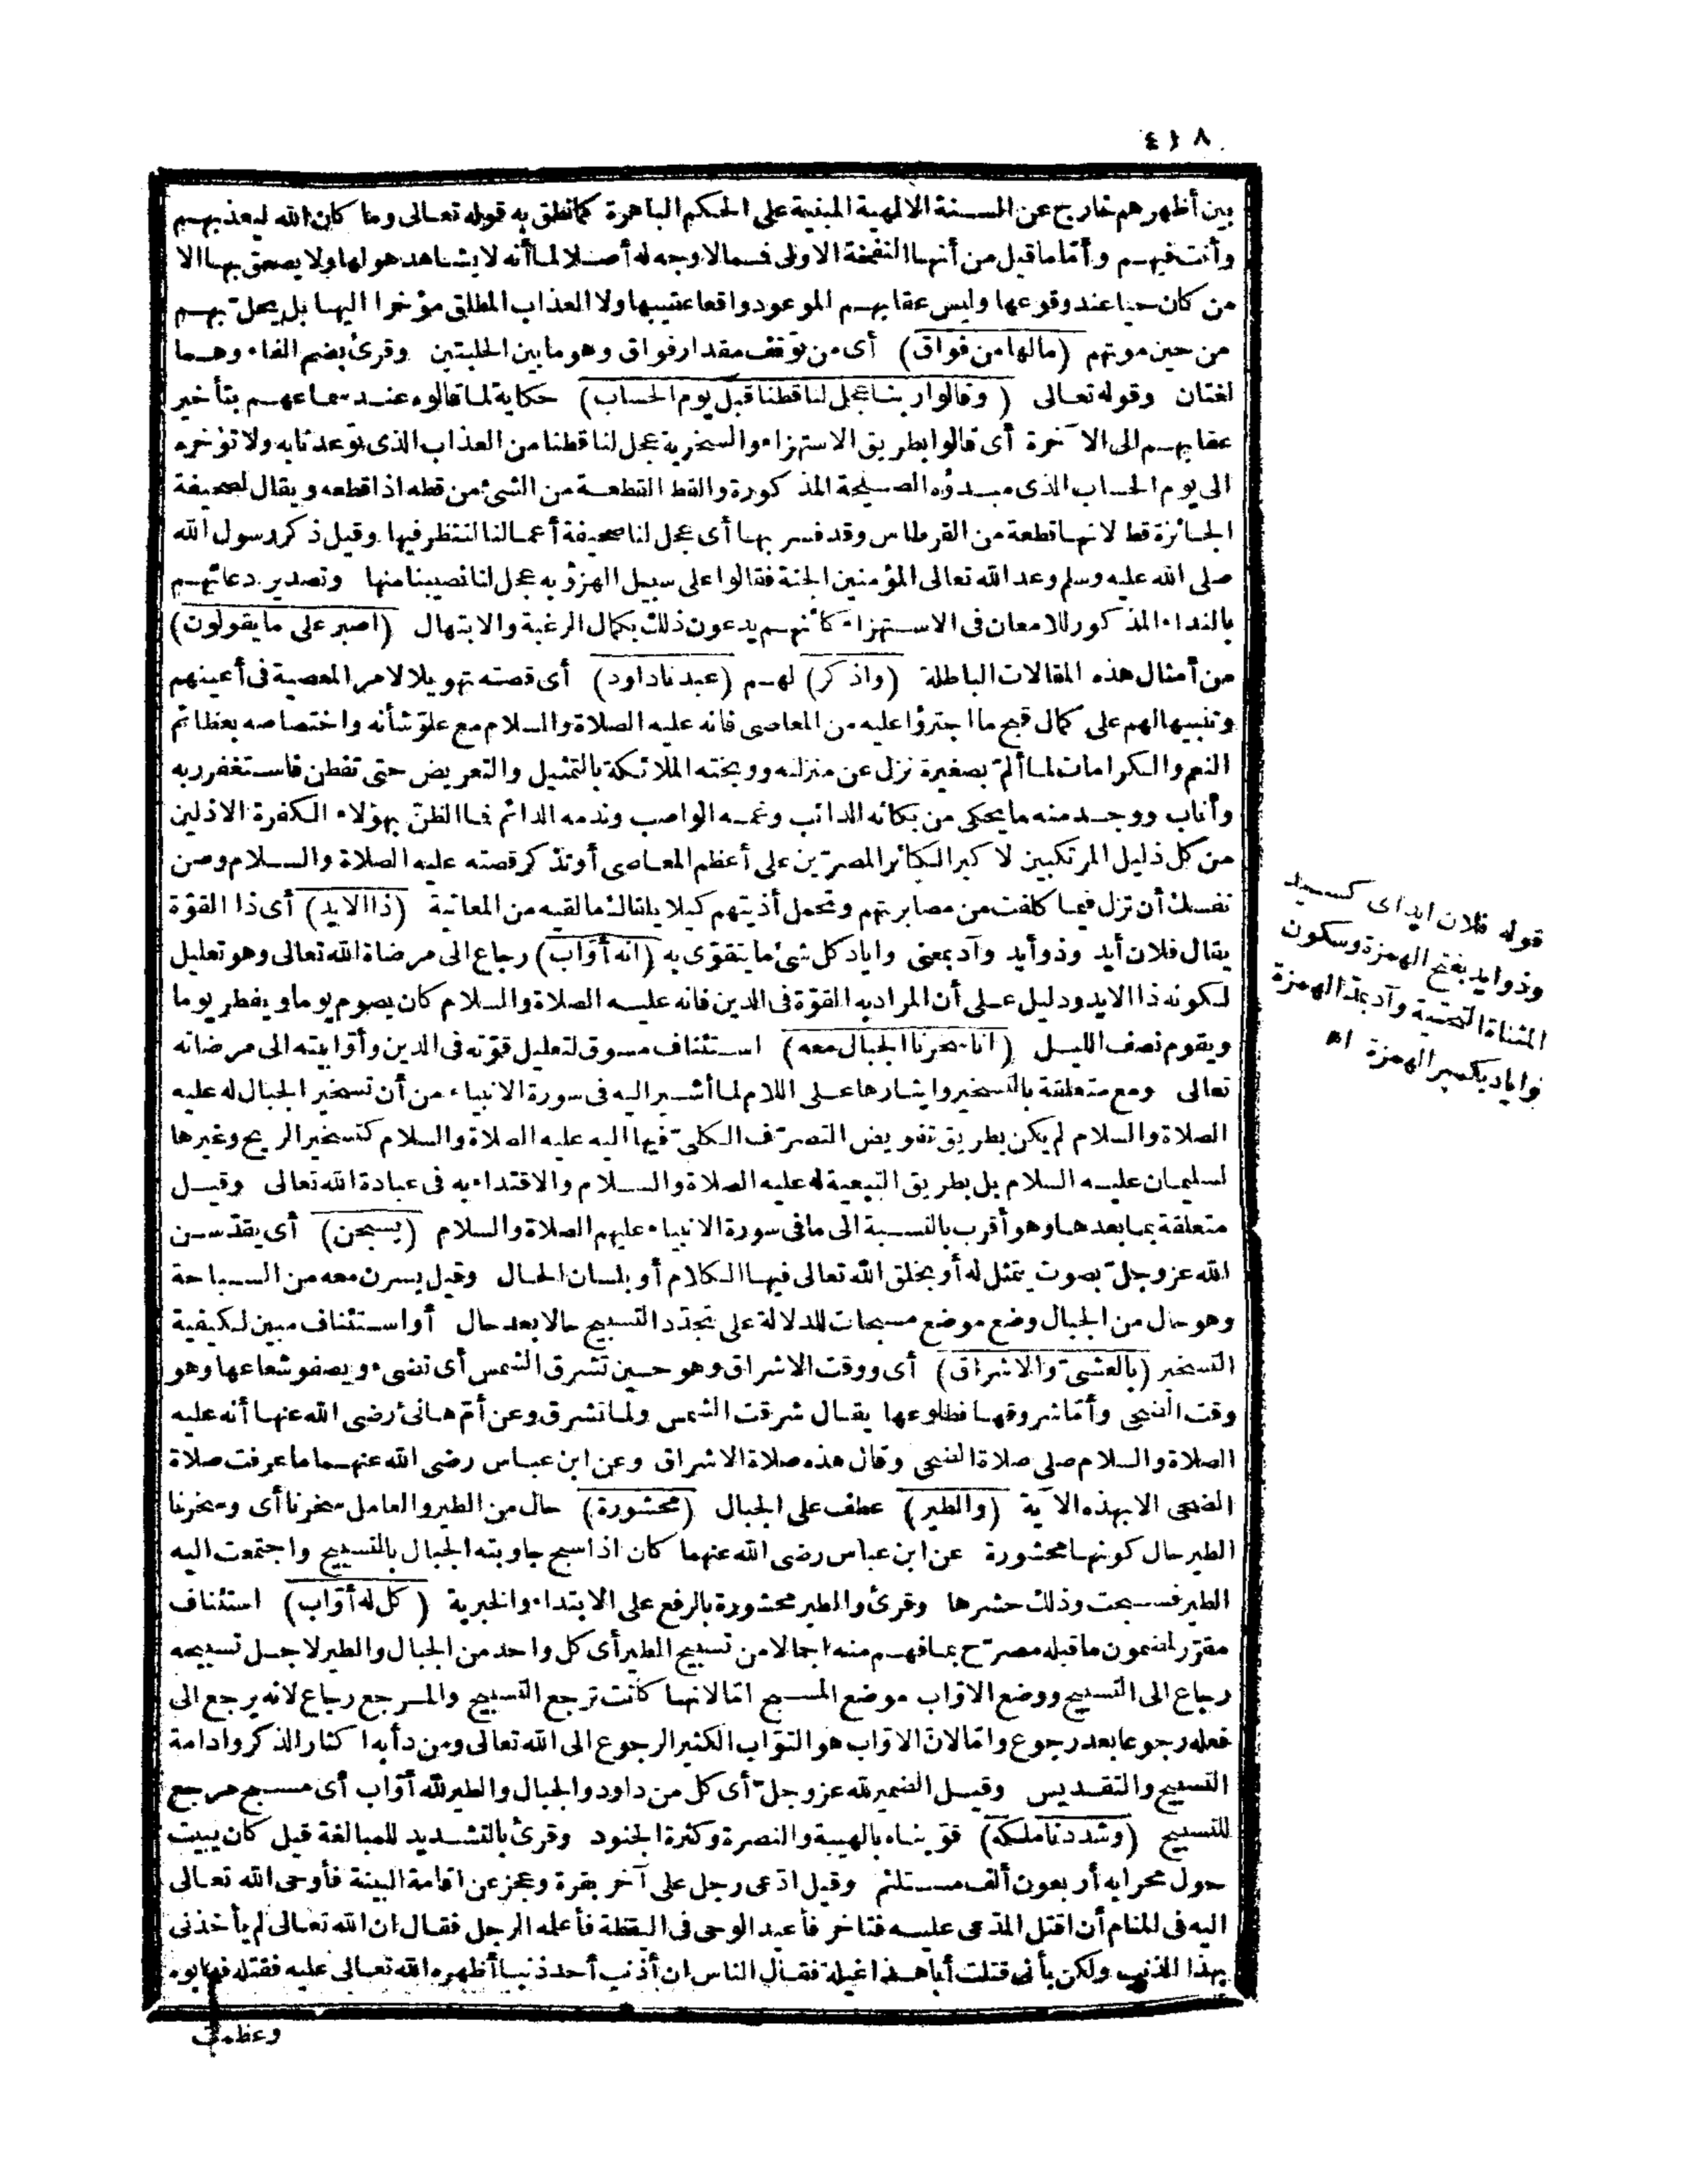 ٤١٨
بين أظهرهم خارج عن السنة الالهية المبنية على الحكم الباهرة كما نطق به قوله تعالى وما كان الله ليعذبهم
وأنت فيهم وأما ما قيل من أنها النفخة الاولى فمما لا وجه له أصلا لما أنه لا يشاهد هولها ولا يصعق بها الا
من كان حيا عند وقوعها وليس عقابهم الموعود واقعا عقيبها ولا العذاب المطلق مؤخرا اليها بل يحلّ بهم
من حين موتهم (مالها من فواق) أى من توقف مقدار فواق وهو ما بين الحلبتين وقرئ بضم الفاء وهما
لغتان وقوله تعالى (وقالوا ربنا عجل لنا قطنا قبل يوم الحساب) حكاية لما قالوه عند سماعهم بتأخير
عقابهم الى الآخرة أى قالوا بطريق الاستهزاء والسخرية عجل لنا قطنا من العذاب الذى توعدنا به ولا تؤخره
الى يوم الحساب الذى مبدؤه الصيحة المذكورة والقط القطعة من الشئ من قطه اذا قطعه ويقال لصحيفة
الجائزة قط لانها قطعة من القرطاس وقد فسر بها أى عجل لنا صحيفة أعمالنا لننظر فيها وقيل ذكر رسول الله
صلى الله عليه وسلم وعد الله تعالى المؤمنين الجنة فقالوا على سبيل الهزؤ به عجل لنا نصيبنا منها وتصدير دعائهم
بالنداء المذكور للامعان فى الاستهزاء كأنهم يدعون ذلك بكمال الرغبة والابتهال (اصبر على ما يقولون)
من أمثال هذه المقالات الباطلة (واذكر) لهم (عبدنا داود) أى قصته تهويلا لامر المعصية فى أعينهم
وتنبيها لهم على كمال قبح ما اجترؤا عليه من المعاصى فانه عليه الصلاة والسلام مع علوّ شأنه واختصاصه بعظائم
النعم والكرامات لما ألمّ بصغيرة نزل عن منزلته ووبخته الملائكة بالتمثيل والتعريض حتى تفطن فاستغفر ربه
وأناب ووجد منه ما يحكى من بكائه الدائب وغمه الواصب وندمه الدائم فما الظنّ بهؤلاء الكفرة الاذلين
من كل ذليل المرتكبين لا كبر الكبائر المصرّين على أعظم المعاصى أو تذكر قصته عليه الصلاة والسلام وصن
نفسك أن تزل فيما كلفت من مصابرتهم وتحمل أذيتهم كيلا يلقاك ما لقيه من المعاتبة (ذا الايد) أى ذا القوّة
يقال فلان أيد وذو أيد وآد بمعنى واياد كل شئ ما يتقوّى به (انه أوّاب) رجاع الى مرضاة الله تعالى وهو تعليل
لكونه ذا الايد ودليل على أن المراد به القوّة فى الدين فانه عليه الصلاة والسلام كان يصوم يوما ويفطر يوما
ويقوم نصف الليل (انا سخرنا الجبال معه) استئناف مسوق لتعليل قوّته فى الدين وأوّابيته الى مرضاته
تعالى ومع متعلقة بالتسخير وايثارها على اللام لما أشير اليه فى سورة الانبياء من أن تسخير الجبال له عليه
الصلاة والسلام لم يكن بطريق تفويض التصرّف الكلىّ فيها اليه عليه الصلاة والسلام كتسخير الريح وغيرها
لسليمان عليه السلام بل بطريق التبعية له عليه الصلاة والسلام والاقتداء به فى عبادة الله تعالى وقيل
متعلقة بما بعدها وهو أقرب بالنسبة الى ما فى سورة الانبياء عليهم الصلاة والسلام (يسبحن) أى يقدّسن
الله عز وجلّ بصوت يتمثل له أو بخلق الله تعالى فيها الكلام أو بلسان الحال وقيل يسرن معه من السباحة
وهو حال من الجبال وضع موضع مسبحات للدلالة على تجدّد التسبيح حالا بعد حال أو استئناف مبين لكيفية
التسخير (بالعشىّ والاشراق) أى ووقت الاشراق وهو حين تشرق الشمس أى تضىء ويصفو شعاعها وهو
وقت الضحى وأمّا شروقها فطلوعها يقال شرقت الشمس ولما تشرق وعن أمّ هانئ رضى الله عنها أنه عليه
الصلاة والسلام صلى صلاة الضحى وقال هذه صلاة الاشراق وعن ابن عباس رضى الله عنهما ما عرفت صلاة
الضحى الا بهذه الآية (والطير) عطف على الجبال (محشورة) حال من الطير والعامل سخرنا أى وسخرنا
الطير حال كونها محشورة عن ابن عباس رضى الله عنهما كان اذا سبح جاوبته الجبال بالتسبيح واجتمعت اليه
الطير فسبحت وذلك حشرها وقرئ والطير محشورة بالرفع على الابتداء والخبرية (كل له أوّاب) استئناف
مقرّر لمضمون ما قبله مصرّح بما فهم منه اجمالا من تسبيح الطير أى كل واحد من الجبال والطير لاجل تسبيحه
رجاع الى التسبيح ووضع الاوّاب موضع المسبح امّا لانها كانت ترجع التسبيح والمرجع رجاع لانه يرجع الى
فعله رجوعا بعد رجوع وامّا لانّ الاوّاب هو التوّاب الكثير الرجوع الى الله تعالى ومن دأبه اكثار الذكر وادامة
التسبيح والتقديس وقيل الضمير لله عز وجلّ أى كل من داود والجبال والطير لله أوّاب أى مسبح مرجع
للتسبيح (وشددنا ملكه) قوّيناه بالهيبة والنصرة وكثرة الجنود وقرئ بالتشديد للمبالغة قيل كان يبيت
حول محرابه أربعون ألف مستلئم وقيل ادّعى رجل على آخر بقرة وعجز عن اقامة البينة فأوحى الله تعالى
اليه فى المنام أن اقتل المدّعى عليه فتأخر فأعيد الوحى فى اليقظة فأعلمه الرجل فقال ان الله تعالى لم يأخذنى
بهذا الذنب ولكن بأنى قتلت أبا هذا غيلة فقال الناس ان أذنب أحد ذنبا أظهره الله تعالى عليه فقتله فهابوه
وعظمت
قوله فلان ايد اى كسيد
وذو ايد بفتح الهمزة وسكون
المثناة التحتية وآد بمد الهمزة
واياد بكسر الهمزة اه